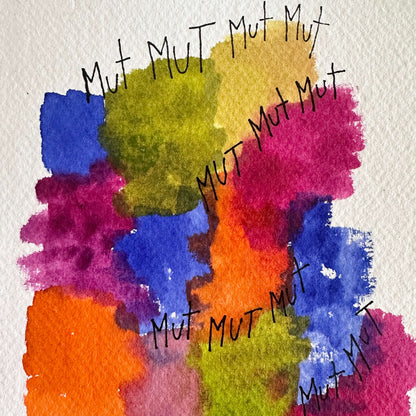 Mut MUT Mut Mut
MUT Mut Mut
Mut MUT Mut
Mut MuT